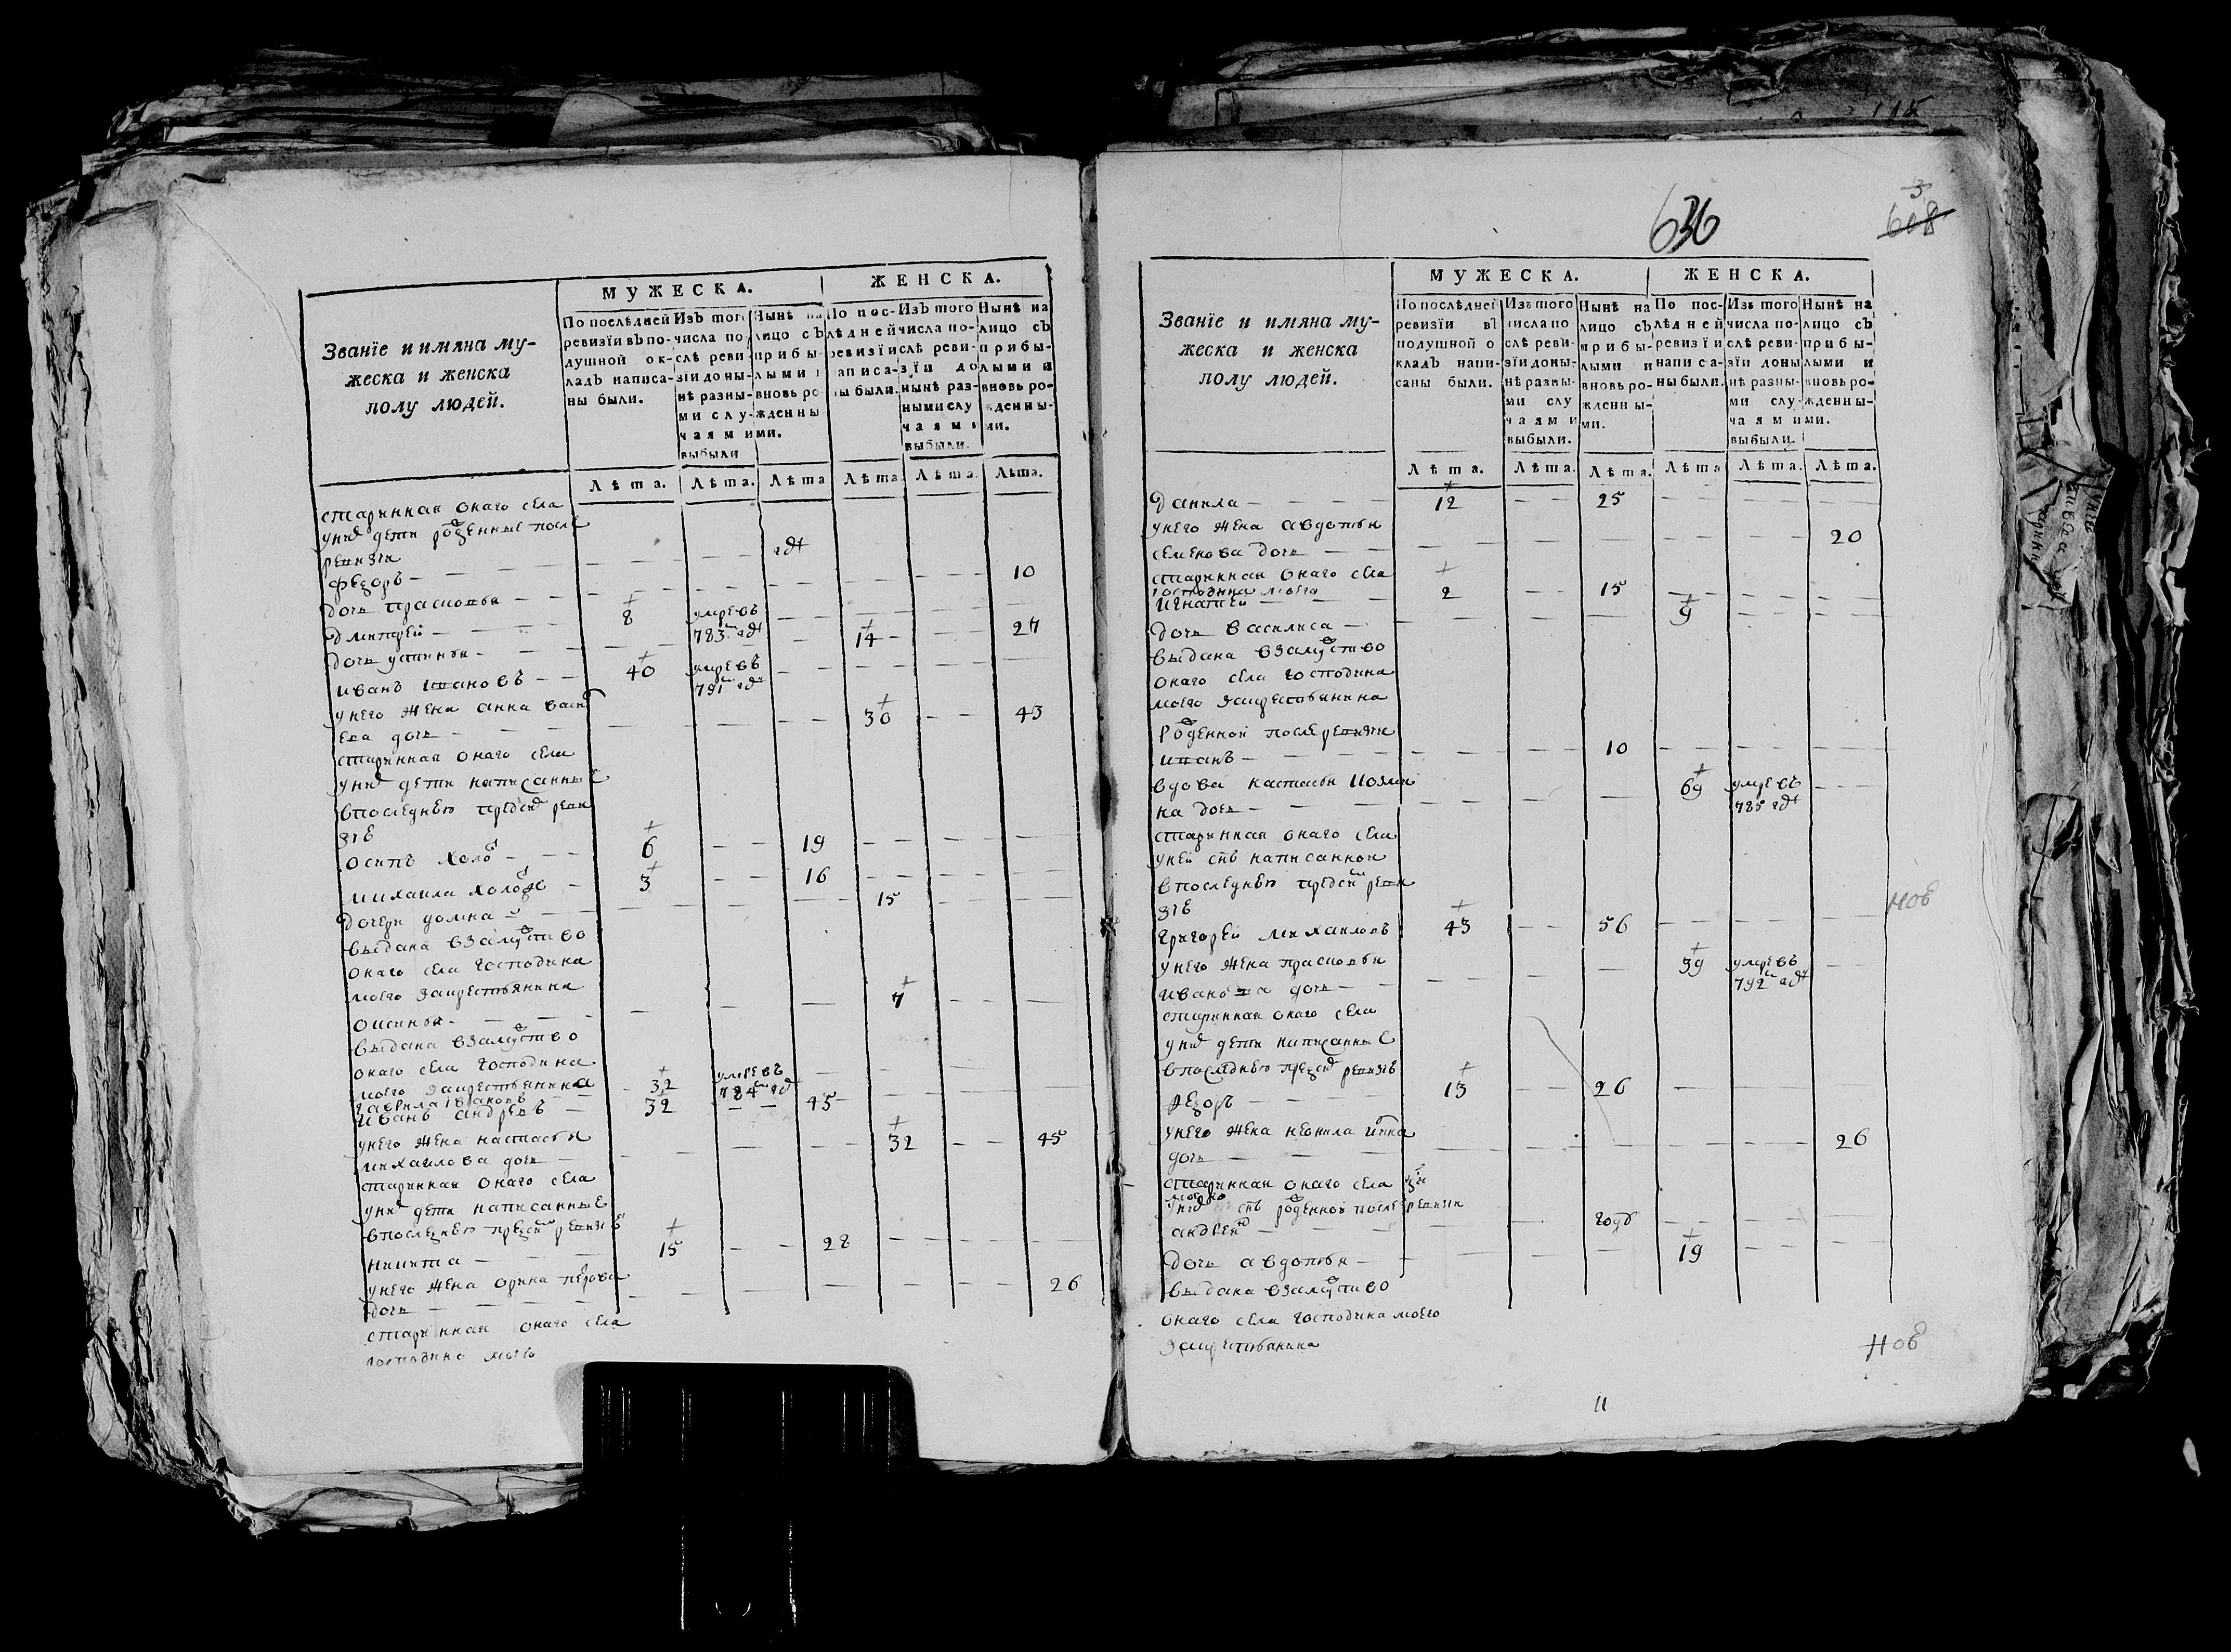 МУЖЕСКА.
ЖЕНСКА.
Званїе и имяна му-
жеска и женска
полу людей.
По послѣдней
ревизїи въ по-
душной ок-
ладъ написа-
ны были.
Изъ того
числа по
слѣ реви-
зїи доны-
нѣ разны-
ми слу-
чаями
выбыли
Нынѣ на
лицо съ
прибы-
лыми и
вновь ро
жденны
ми.
По пос-
лѣдней
ревизїи
написа-
ны были.
Изъ того
числа по-
слѣ реви-
зїи до
нынѣ раз-
ными слу
чаями
выбыли.
Нынѣ на
лицо съ
прибы-
лыми и
вновь ро
жденны-
ми.
Лѣта. Лѣта. Лѣта Лѣта Лѣта. Лѣта.
старинная онаго села
у них дети рожденные после
ревизи
Федоръ — годъ
дочь прасковья — 10
Дмитрей — 8 умре въ 783м годъ
дочь устинья — 14 27
иванъ ивановъ — 40 умре въ 791м годъ
у него жена анна васил
ева дочь — 30 43
старинная онаго села
у них дети написанные
в последнею пред сим реви
зie
осипъ холо 6 19
михаила холо 3 16
дочери домна — 15
выдана в замужство
онаго села господина
моего за крестьянина
оксинья — 7
выдана в замужство
онаго села господина
моего за крестьянина
гаврила иванов 32 умре въ 784м годъ
иванъ андревъ — 32 45
у него жена настасья
михаилова дочь — 32 45
старинная онаго села
у них дети написанные
в последнею пред сим ревизie
никита — 15 28
у него жена орина петрова
дочь — 26
старинная онаго села
господина моего
636
3
608
МУЖЕСКА.
ЖЕНСКА.
Званїе и имяна му-
жеска и женска
полу людей.
По послѣдней
ревизїи въ
подушной о
кладъ напи-
саны были.
Изъ того
числа по
слѣ реви-
зїи доны-
нѣ разны-
ми слу
чаями
выбыли.
Нынѣ на
лицо съ
прибы-
лыми и
вновь ро-
жденны-
ми.
По пос-
лѣдней
ревизїи
написа-
ны были.
Изъ того
числа по-
слѣ реви-
зїи доны
нѣ разны-
ми слу-
чаями
выбыли.
Нынѣ на
лицо съ
прибы-
лыми и
вновь ро-
жденны-
ми.
Лѣта. Лѣта. Лѣта. Лѣта Лѣта. Лѣта.
Данила — 12 25
у него жена авдотья
семенова дочь — 20
старинная онаго села
господина моего
Игнатей — 2 15
дочь василиса — 9
выдана в замужство
онаго села господина
моего за крестьянина
рожденной после ревизи
иванъ — 10
вдова настасья козми
на дочь — 69 умре въ 785 годъ
старинная онаго села
у ней снъ написанной
в последнею пред сим реви
зie
григорей михаиловъ 43 56
у него жена прасковья
иванова дочь — 39 умре въ 792м годъ
старинная онаго села
у них дети написанные
в последнею пред сим ревизie
Федоръ — 13 26
у него жена неонила
дочь — 26
старинная онаго села
у них снъ рожденной после ревизи
андрей — годъ
дочь авдотья — 19
выдана в замужство
онаго села господина моего
за крестьянина
нов
нов
11